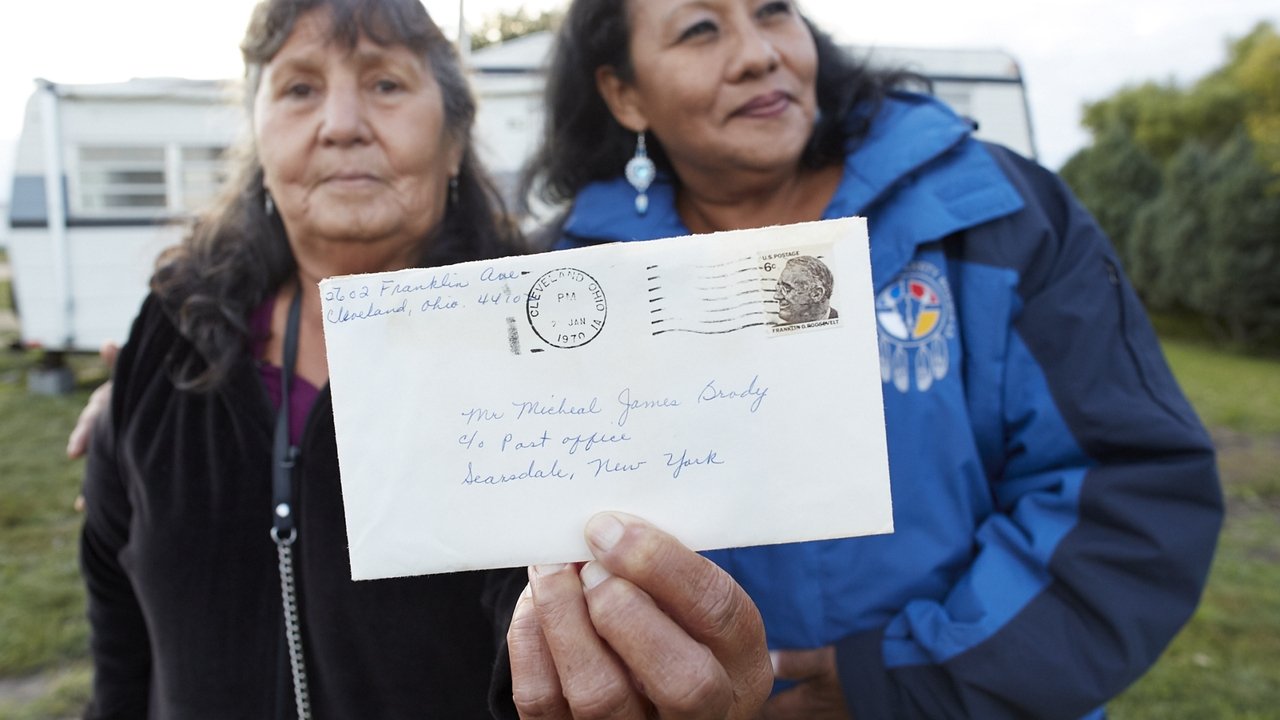 2602 Franklin Ave
Cleveland, Ohio.
CLEVELAND OHIO
PM
2 JAN
1970
U.S. POSTAGE
6c
FRANKLIN D. ROOSEVELT
Mr Micheal James Brody
c/o Post office
Scarsdale, New York